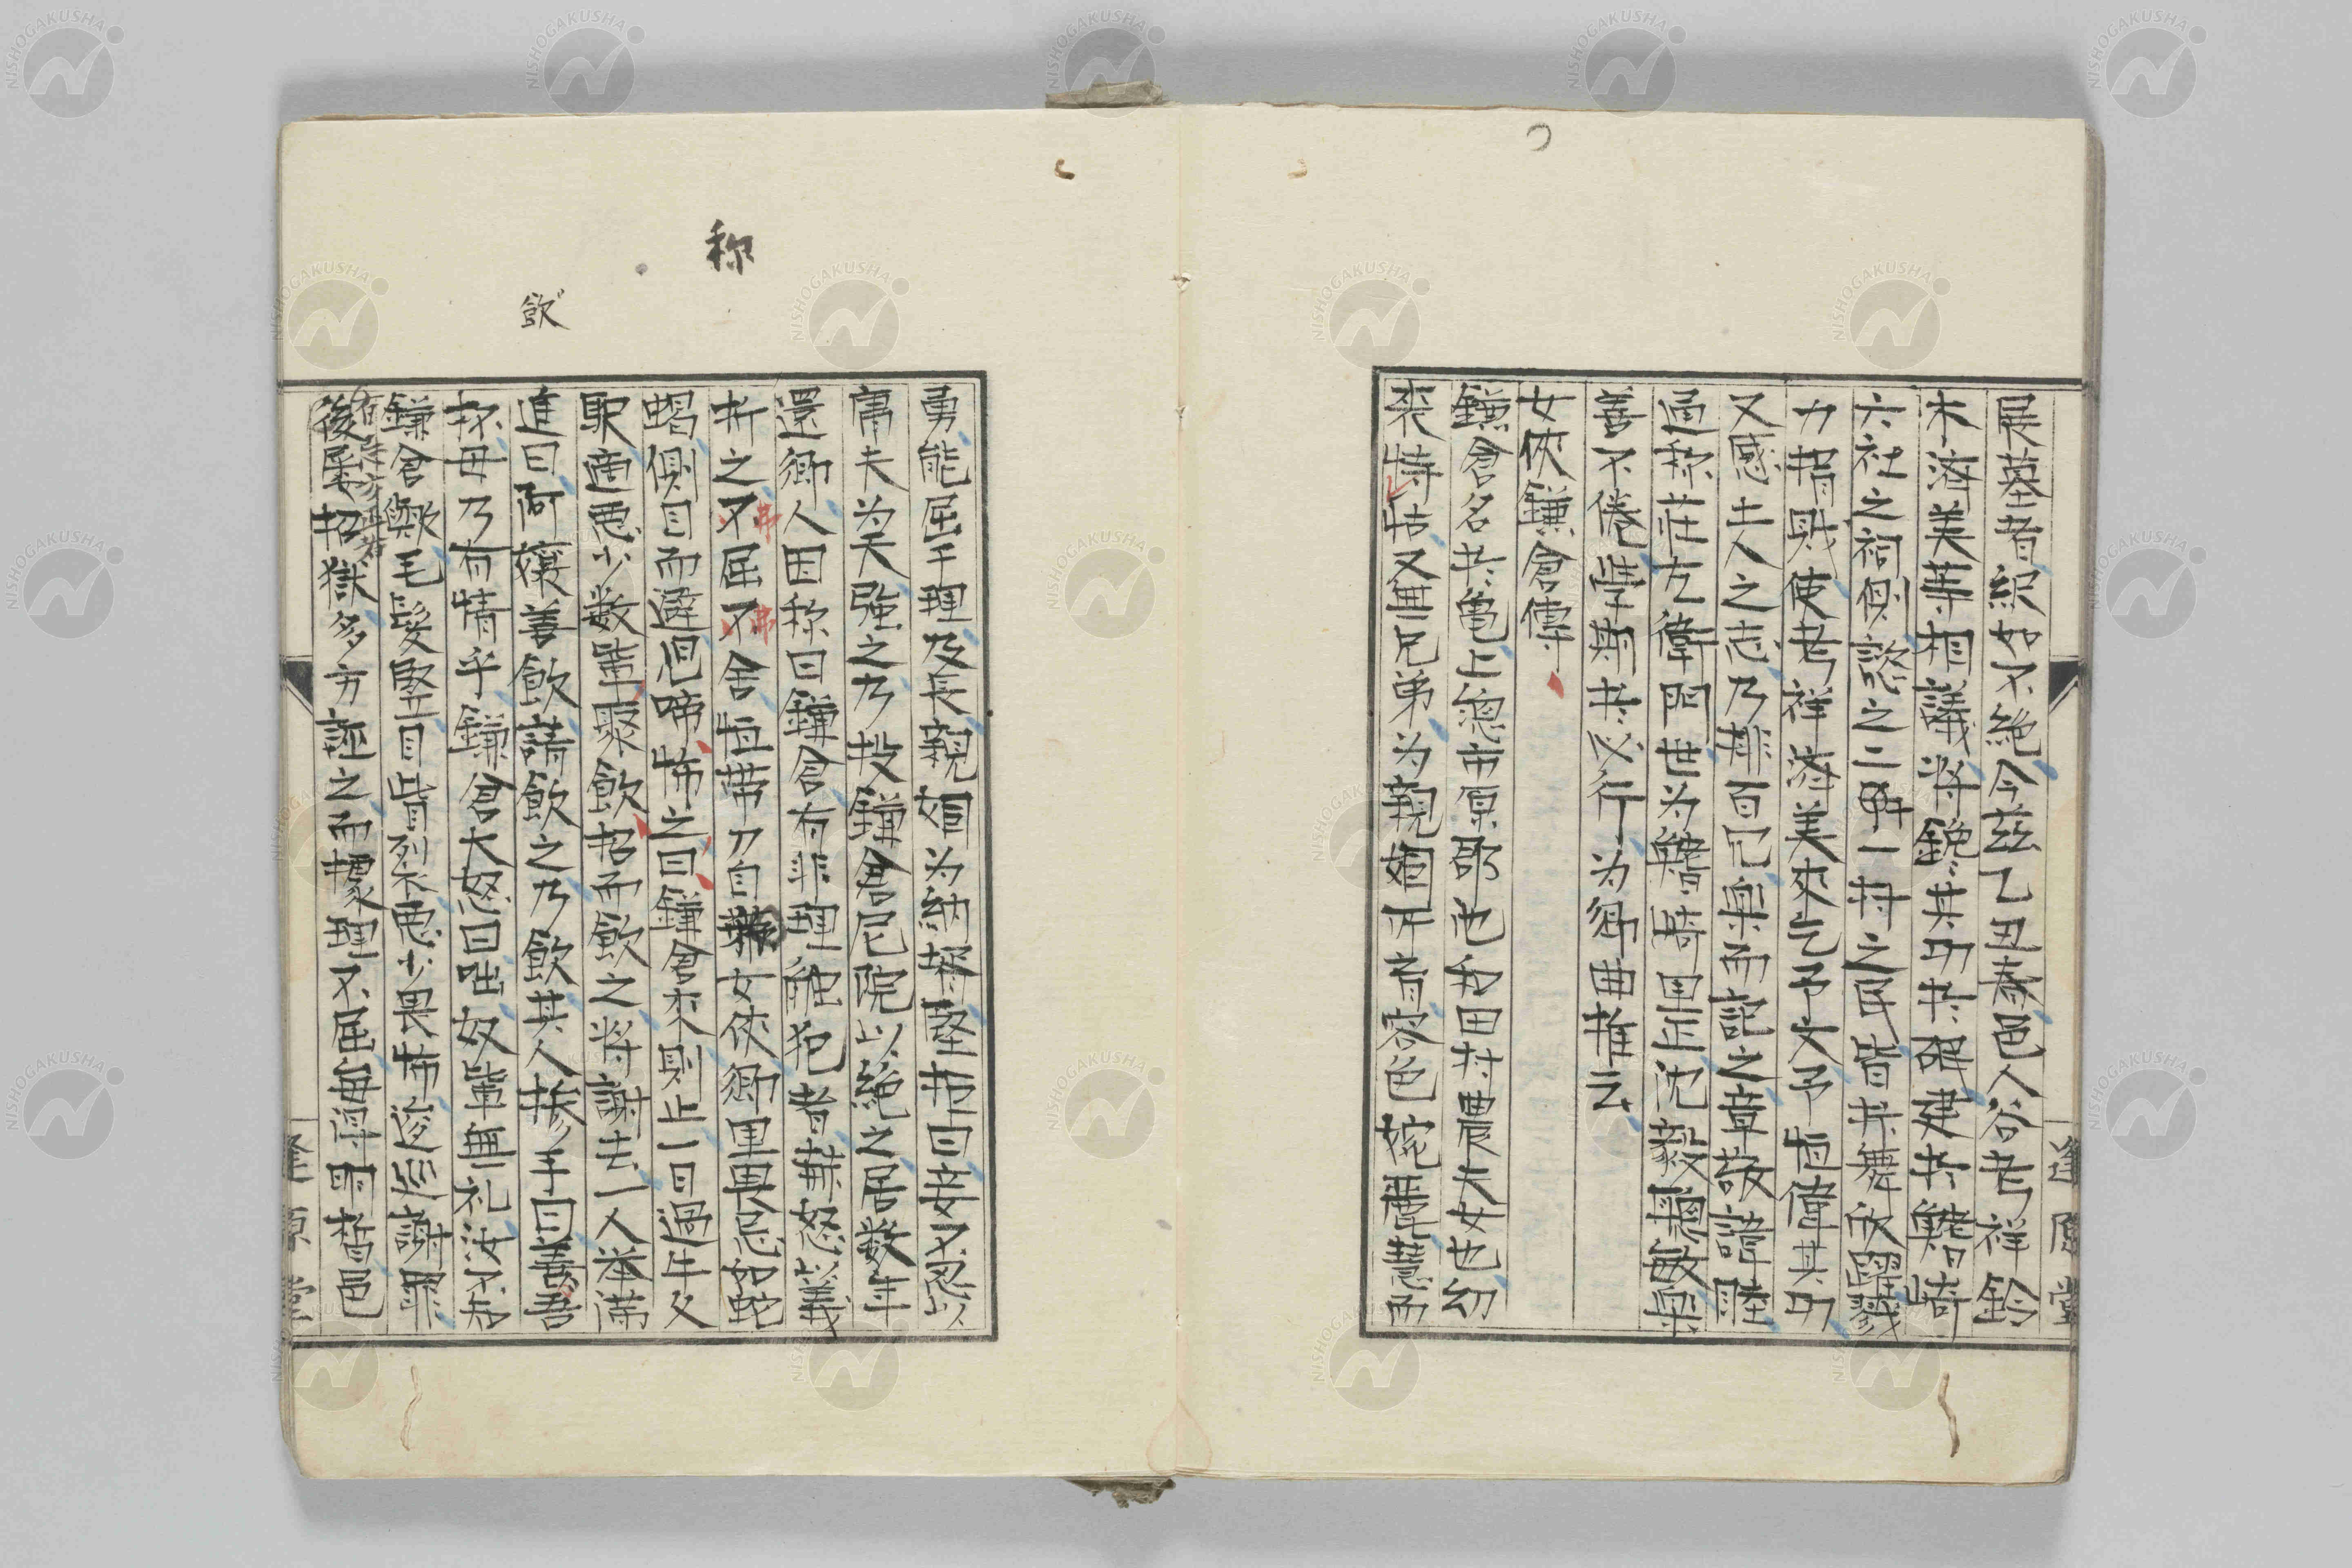 展墓者絡繹如不絶今茲乙丑春邑人谷老祥鈴
木濟美等相議将銘其功於碑建於鱔崎
六社之祠側諗之二郷十一村之民皆抃舞欣躍戮
力捐戝使老祥濟美來乞予文予壮偉其功
又感土人之志乃排百冗染而記之章敬諱睦
通称荘左衛門世為鱔崎里正沈毅聰敏樂
善不倦学期於必行為郷曲推云
女侠鎌倉傳
鎌倉名於亀上総市原郡池和田村農夫女也幼
喪恃怙又無兄弟为親姻所育容色姹麗慧而
勇能屈于理及長親姻为納婿堅拒曰妾不忍以
庸夫为夫強之乃投鎌倉尼院以絶之居数年
還郷人因称曰鎌倉有非理鯱犯者赫怒以義
折之不屈不舎恒帯刀自称女侠郷里畏忌如蛇
蝎側目而避児啼怖之曰鎌倉來則止一日過牛久
駅適悪少数輩聚飲招而飲之将謝去一人举满
進曰阿孃善飲請飲之乃飲其人摻手曰善吾
叔母乃有情乎鎌倉大怒曰咄奴輩無礼汝不知
鎌倉歟毛髪竪目眥裂悪少畏怖逡巡謝罪
後屡招獄多方証之而據理不屈每得明晳邑
称
飲
弗
弗
逢原堂
逢原堂
NISHOGAKUSHA